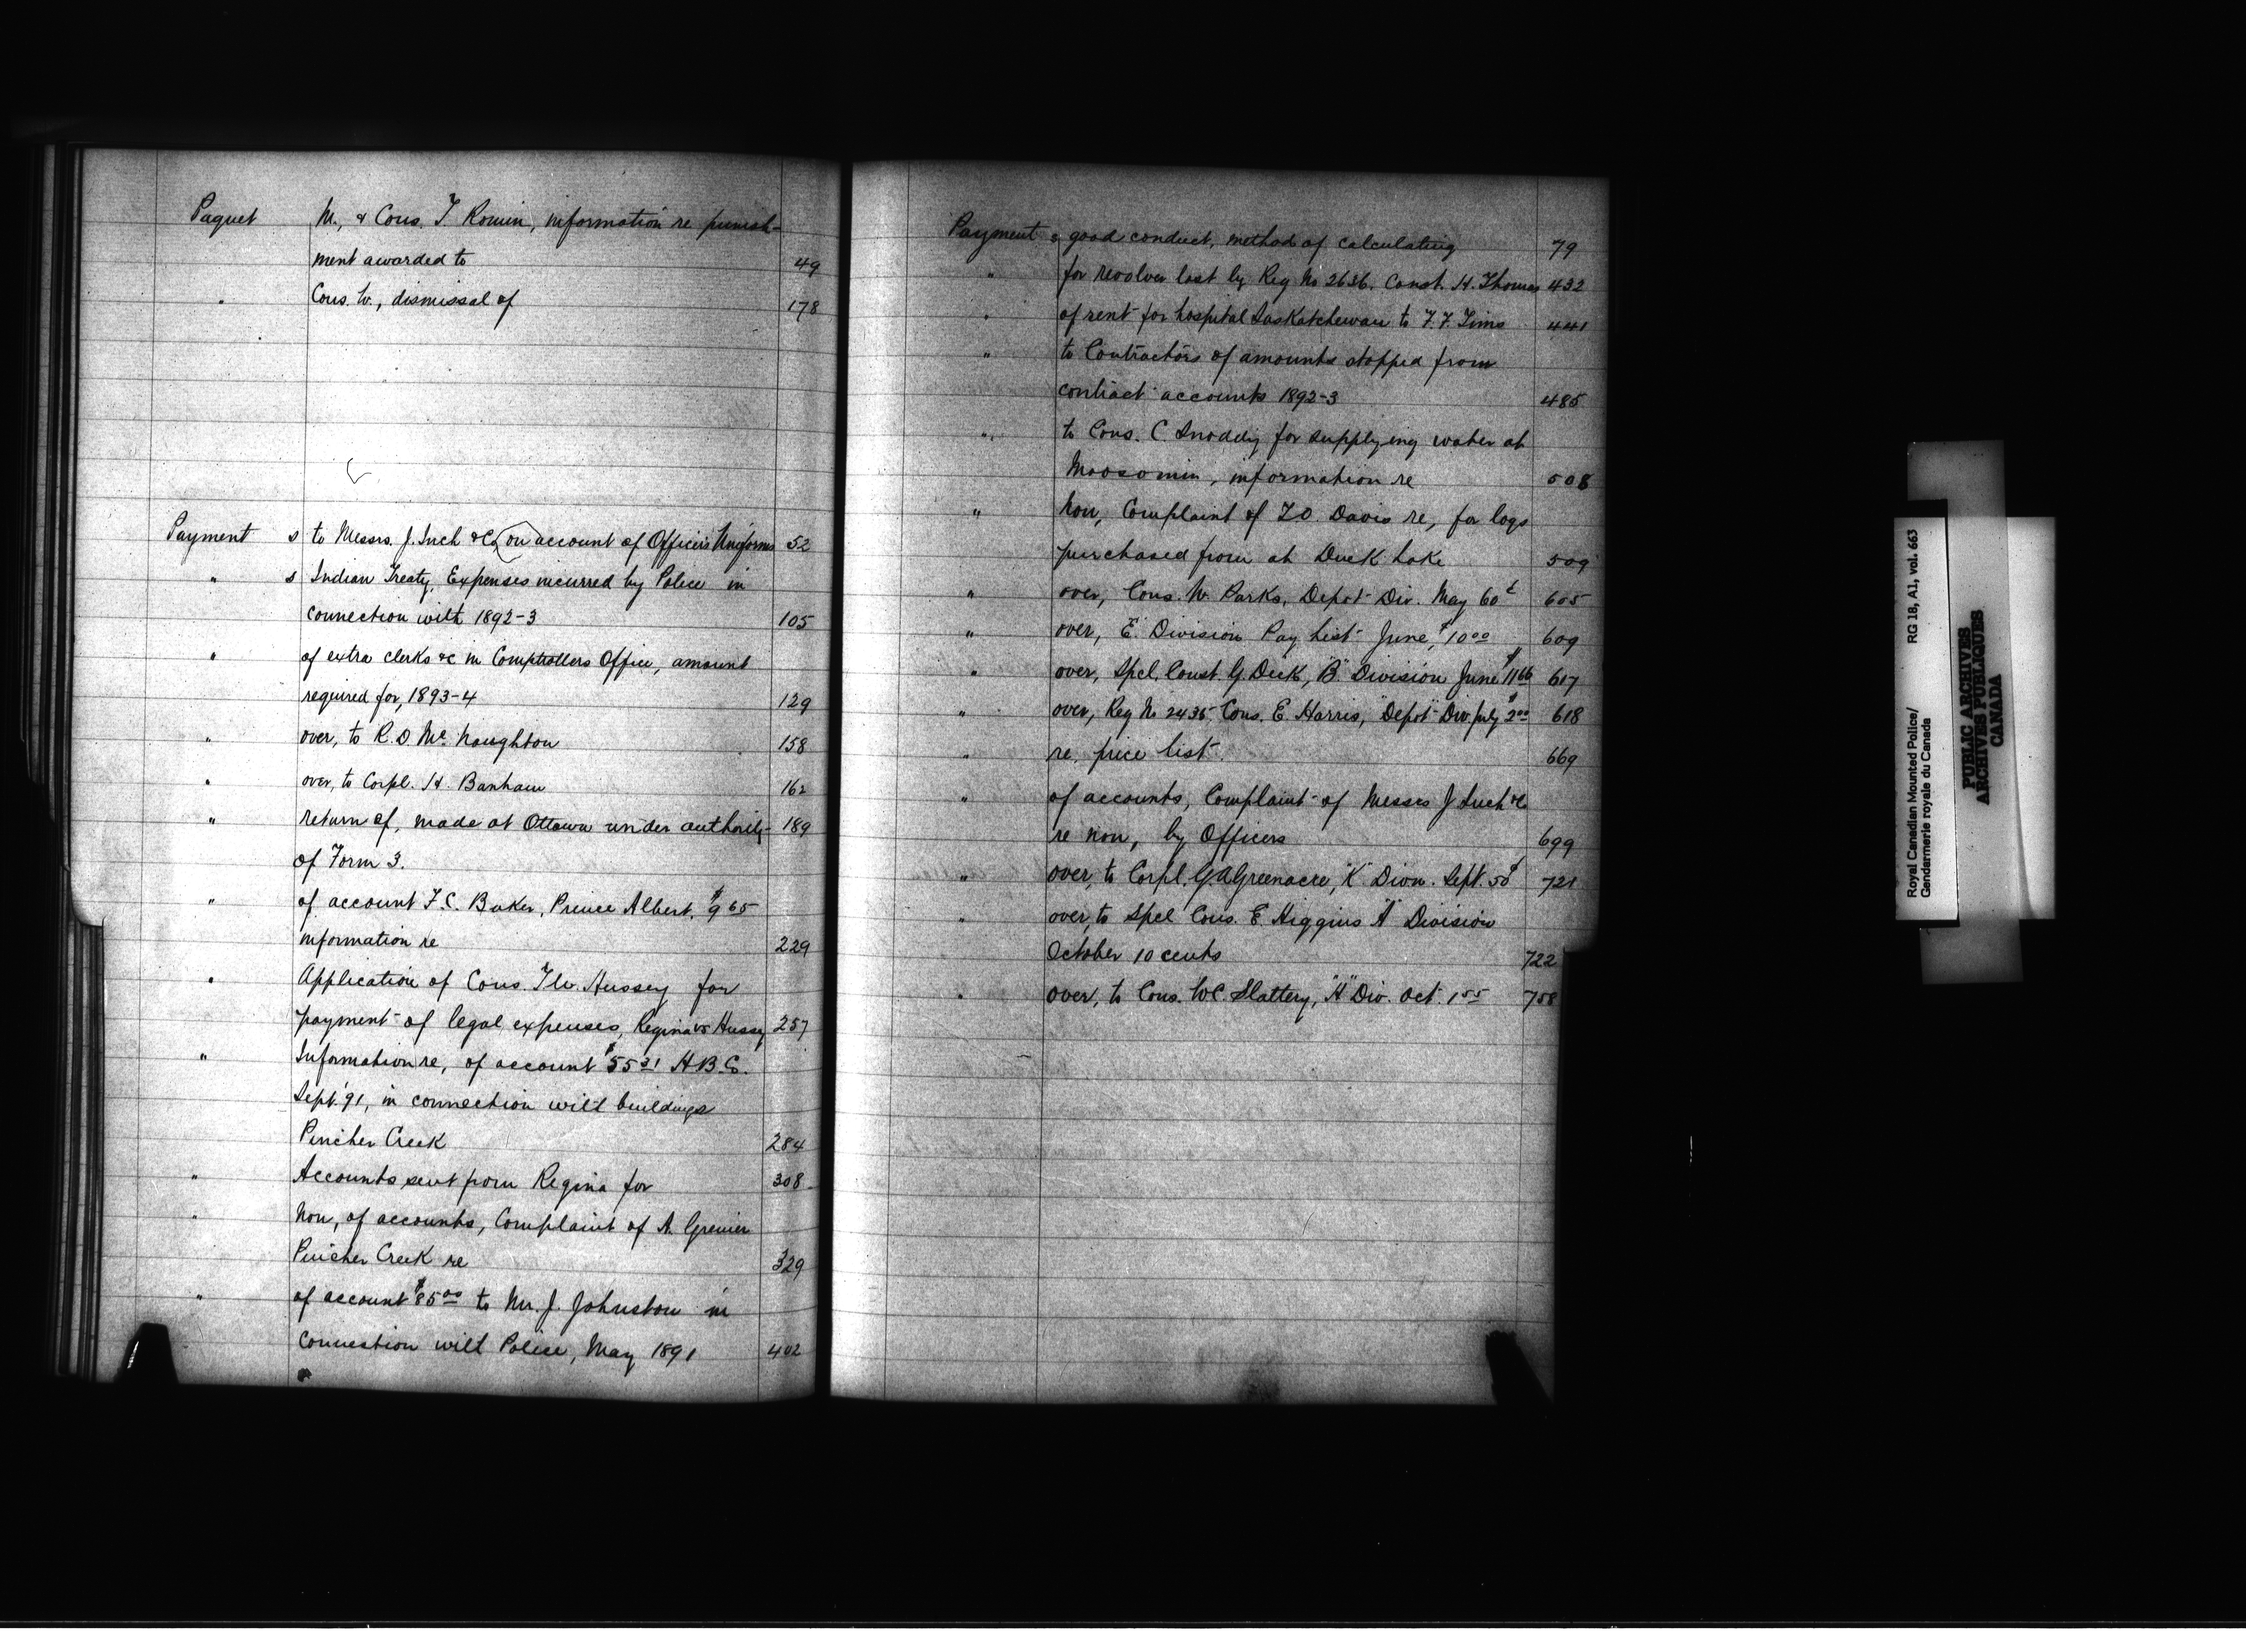 Paquet M., & Cons. T Romin, information re punish-
ment awarded to 49
" Cons. W., dismissal of 178
Payment s to Messrs. J. Inch &c on account of Officers Uniforms 52
" s Indian Treaty, Expenses incurred by Police in
connection with 1892-3 105
" of extra clerks &c in Comptrollers Office, amount
required for, 1893-4 129
" over, to R. D. Mc Naughton 158
" over, to Corpl. H. Banham 162
" return of, made at Ottawa under authority 189
of Form 3.
" of account F. C. Baker, Prince Albert, $9 65
information re 229
" Application of Cons. T. W. Hussey for
payment of legal expenses, Regina vs Hussey 257
" Information re, of account $55 31 H.B.C.
Sept. '91, in connection with buildings
Pincher Creek 284
" Accounts sent from Regina for 308
" Non, of accounts, Complaint of A. Grenier
Pincher Creek re 329
" of account $85 00 to Mr. J. Johnston in
connection with Police, May 1891 402
Payment s good conduct, method of calculating 79
" for revolver lost by Reg No 2636. Const. H. Thomas 432
" of rent for hospital Saskatchewan to F. F. Tims 441
" to Contractors of amounts stopped from
contract accounts 1892-3 485
" to Cons. C Snoddy for supplying water at
Moosomin, information re 508
" Non, Complaint of T O. Davis re, for logs
purchased from at Duck Lake 509
" over, Cons. W. Parks, Depot Div. May 60 ¢ 605
" over, "E" Division Pay List June, $10 00 609
" over, Spcl. Const. G. Dick, "B" Division June $11 66 617
" over, Reg No 2435 Cons. E. Harris, "Depot" Div. July $2 00 618
" re. price list. 669
" of accounts, Complaint of Messrs J. Inch &c
re non, by Officers 699
" over, to Corpl. G. A Greenacre, "K" Divn. Sept. 50 ¢ 721
" over, to Spcl Cons. E. Higgins "A" Division
October 10 cents 722
" over, to Cons. W. C. Slattery, "H" Div. Oct. 1 55 758
Royal Canadian Mounted Police/ RG 18, A1, vol. 663
Gendarmerie royale du Canada
PUBLIC ARCHIVES
ARCHIVES PUBLIQUES
CANADA